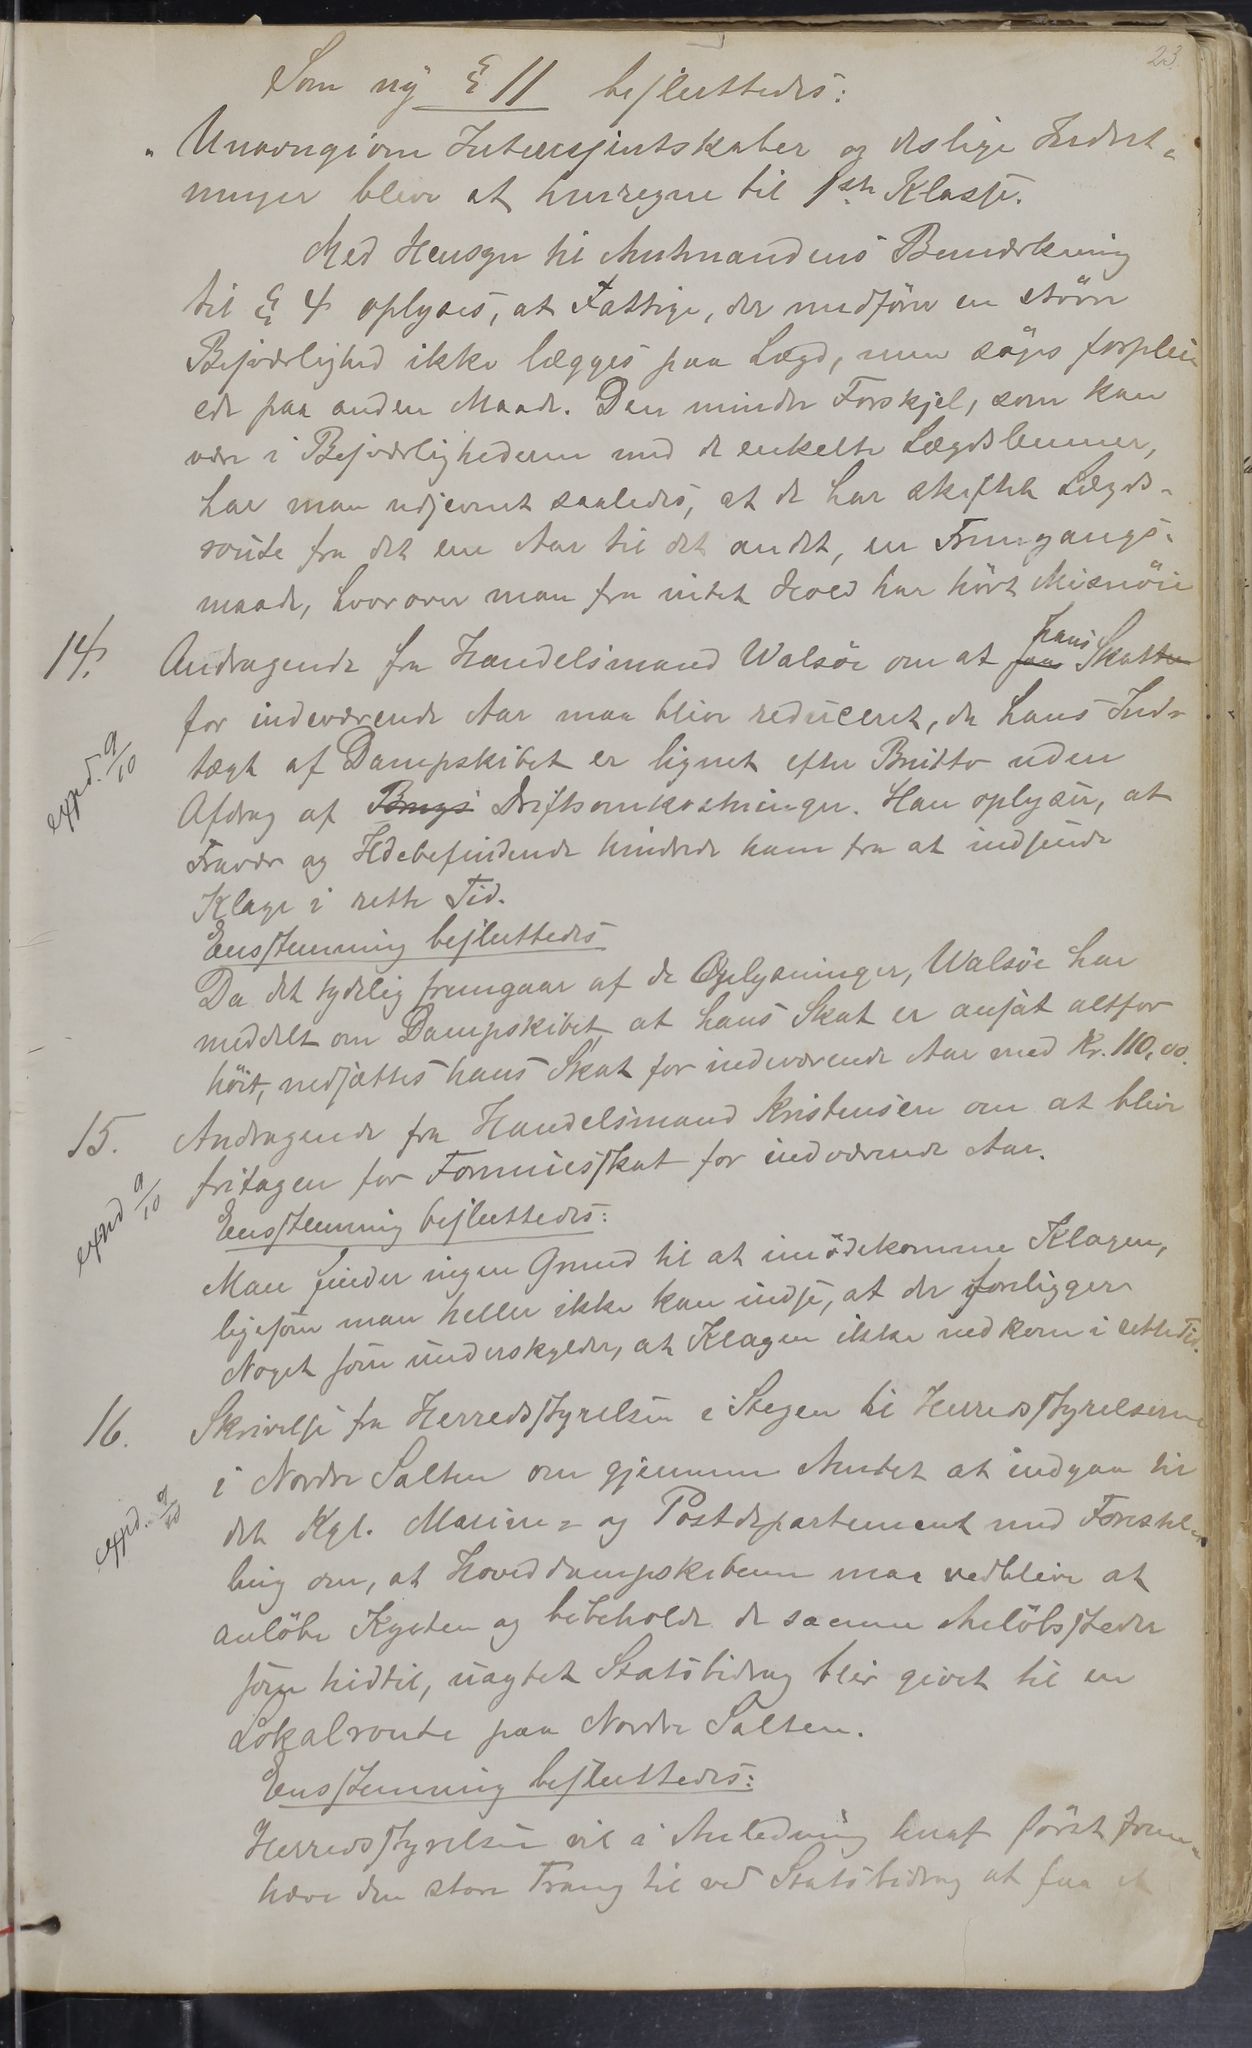 23.
Som ny § 11 besluttedes:
"Unavngivne Interessentskaber og deslige Indret-
ninger blive at henregne til 1ste Klasse.
Med Hensyn til Amtmandens Bemærkning
til § 4 oplyses, at Fattige, der medføre en større
Besværlighed ikke lægges paa Lægd, men søges forplei-
ede paa anden Maade. Den mindre Forskjel, som kan
være i Besværlighederne med de enkelte Lægdslemmer,
har man udjevnet saaledes, at de har skiftet Lægds-
route fra det ene Aar til det andet, en Fremgangs-
maade, hvorover man fra intet Hold har hørt Misnøie
14. Andragende fra Handelsmand Walsøe om at faa hans Skatten
for indeværende Aar maa blive reduceret, da hans Ind-
tægt af Dampskibet er lignet efter Brutto uden
Afdrag af Brugs Driftsomkostninger. Han oplyser, at
Fravær og Ildebefindende hindrede ham fra at indsende
Klage i rette Tid.
expd. 9/10
Eenstemmig besluttedes
Da det tydelig fremgaar af de Oplysninger, Walsöe har
meddelt om Dampskibet, at hans Skat er ansat altfor
høit, nedsættes hans Skat for indeværende Aar med Kr. 110,00.
15. Andragende fra Handelsmand Kristensen om at blive
fritagen for Formuesskat for indeværende Aar.
expd 9/10
Eenstemmig besluttedes:
Man finder ingen Grund til at imødekomme Klagen,
ligesom man heller ikke kan indse, at der foreligger
Noget som undskylder, at Klagen ikke indkom i rette Tid.
16. Skrivelse fra Herredsstyrelsen i Stegen til Herredsstyrelserne
i Nordre Salten om gjennem Amtet at indgaa til
det Kgl. Marine- og Postdepartement med Forestil-
expd. 9/10
ling om, at Hoveddampskibene maa vedblive at
anløbe Kysten og bibeholde de samme Anløbssteder
som hidtil, uagtet Statsbidrag blir givet til en
Lokalroute paa Nordre Salten.
Eenstemmig besluttedes:
Herredsstyrelsen vil i Anledning heraf først frem-
hæve den store Trang til ved Statsbidrag at faa et